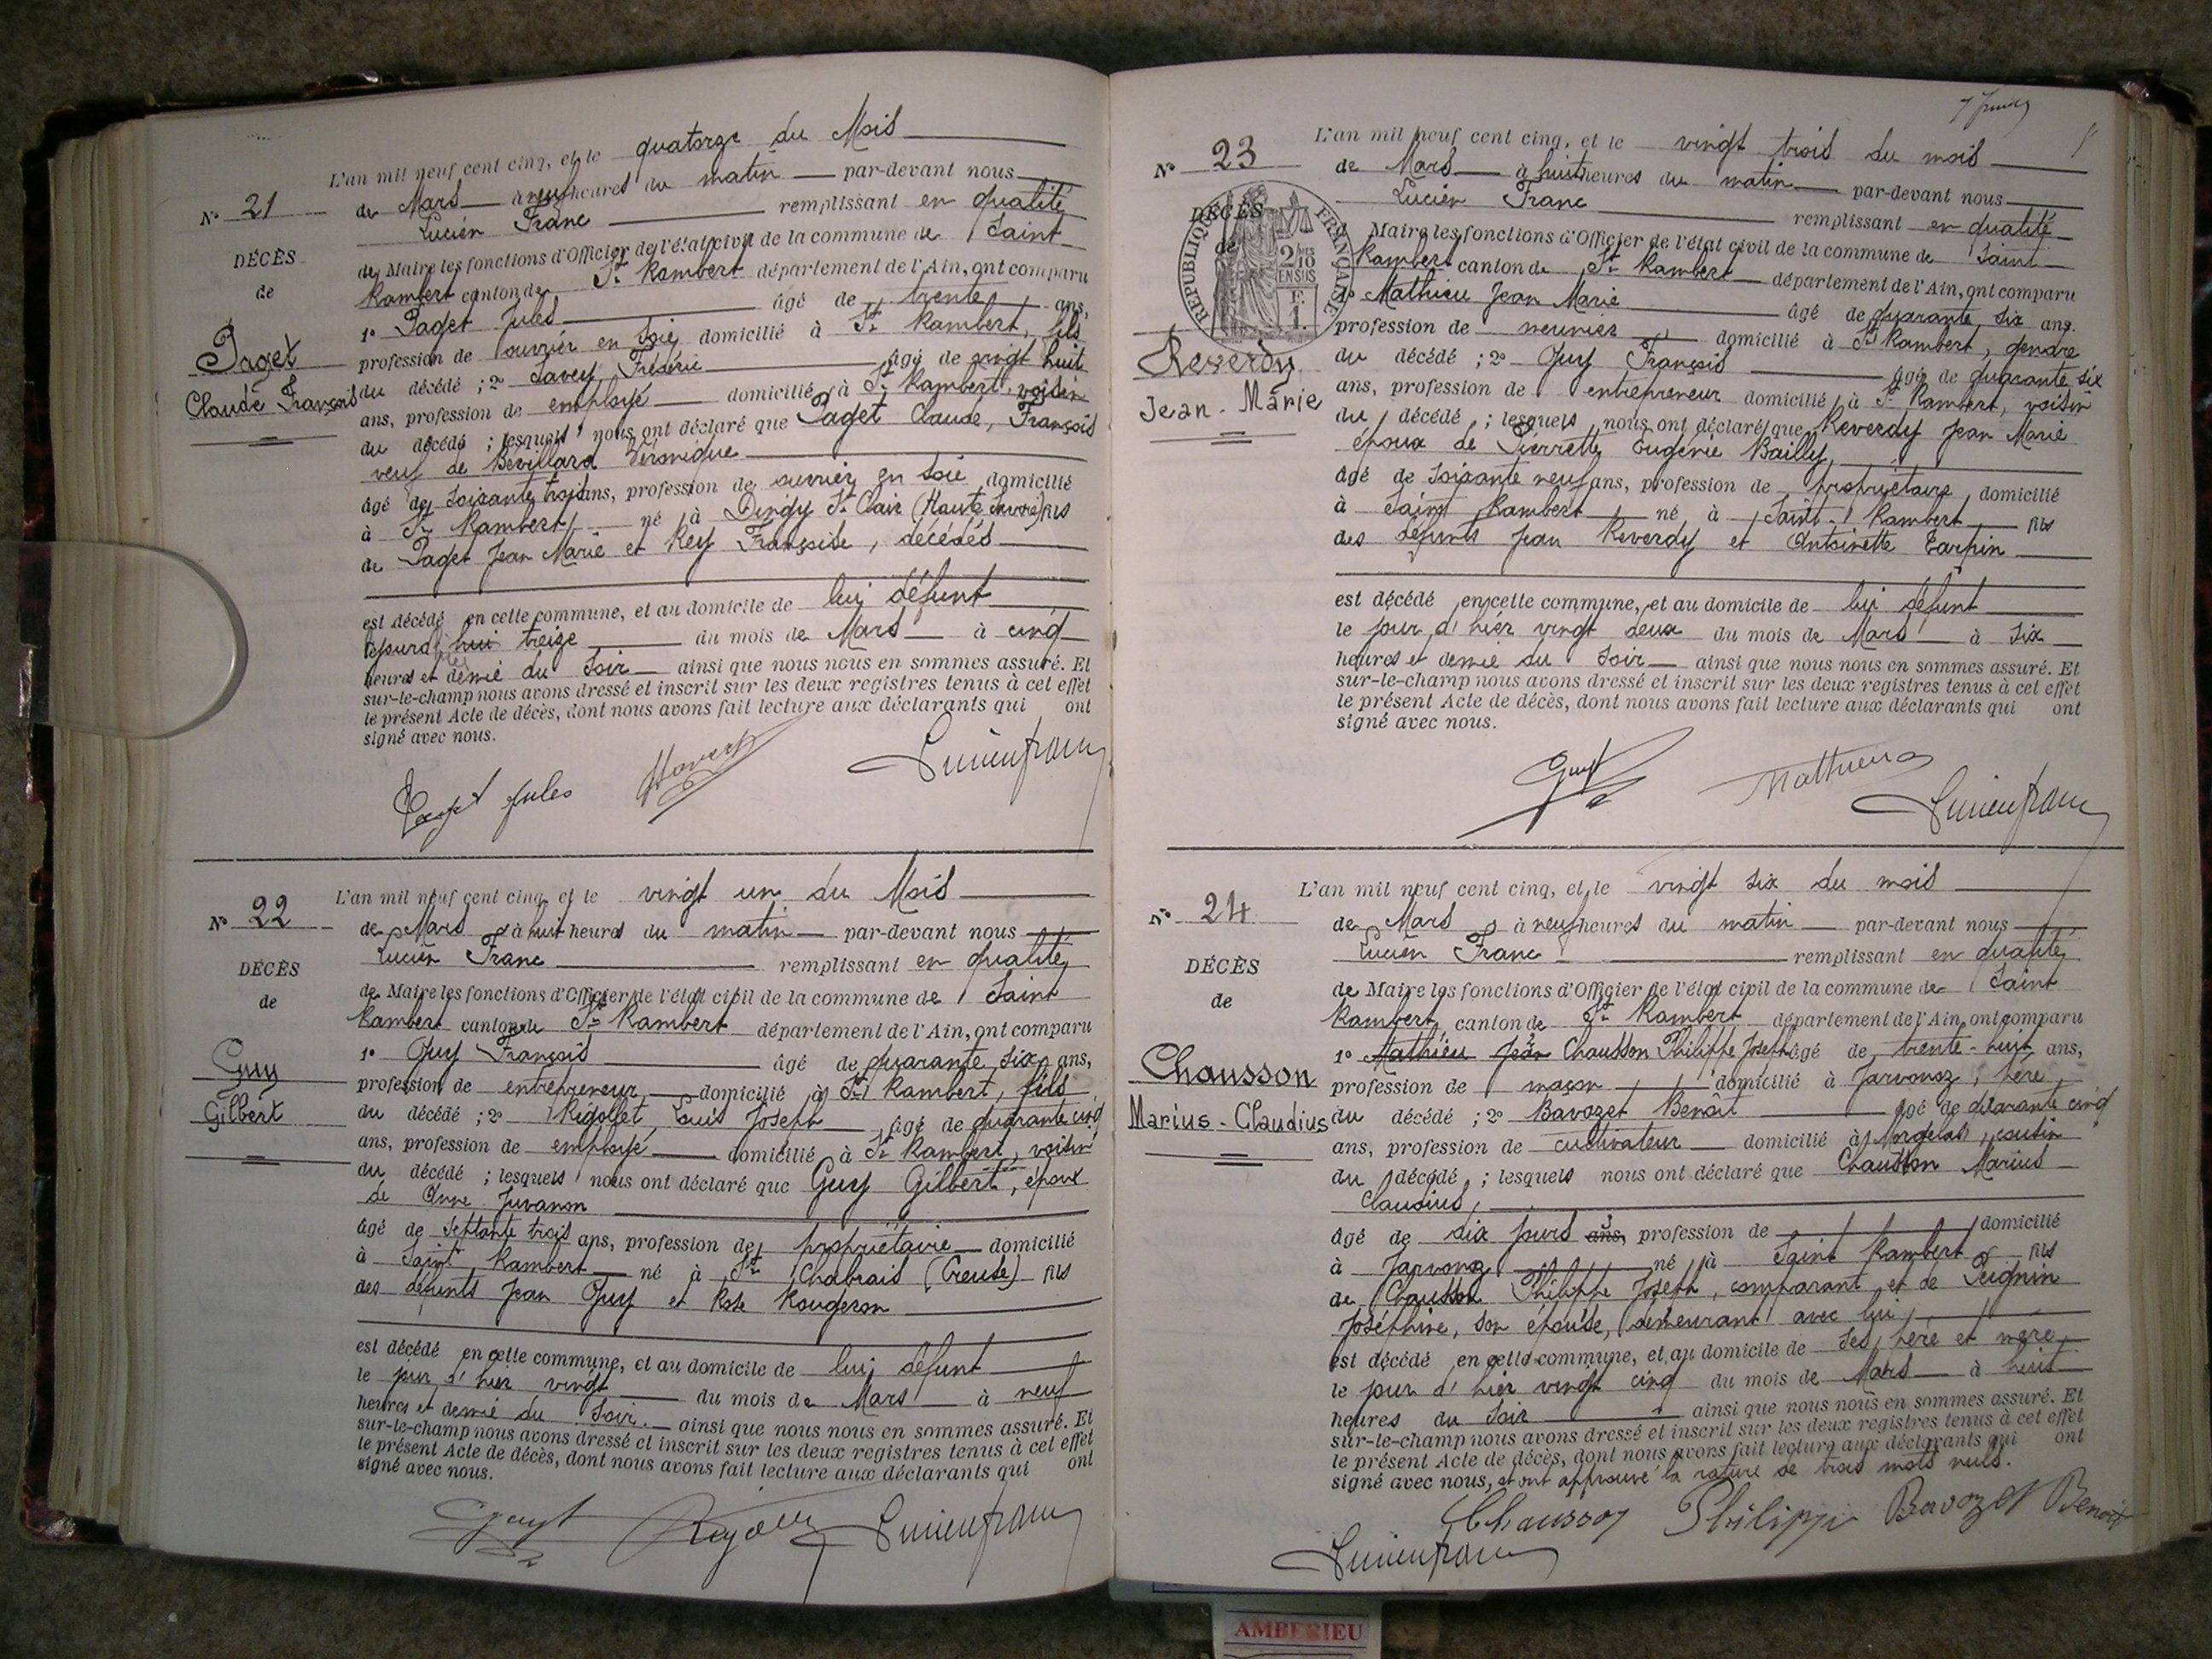 L'an mil neuf cent cinq, et le quatorze du Mois
N° 21
de Mars à neuf heures du matin par-devant nous
Lucien Franc remplissant en qualité
DÉCÈS
de
de Maire les fonctions d'Officier de l'état civil de la commune de Saint
Rambert canton de St Rambert département de l'Ain, ont comparu
1° Paget Jules âgé de trente ans,
profession de ouvrier en soie domicilié à St Rambert, fils
Paget
Claude François
du décédé ; 2° Savey Frédéric âgé de vingt huit
ans, profession de employé domicilié à St Rambert, voisin
du décédé ; lesquels nous ont déclaré que Paget Claude, François
veuf de Bévillard Véronique
âgé de soixante trois ans, profession de ouvrier en soie domicilié
à St Rambert né à Dingy St Clair (Haute Savoie) fils
de Paget Jean Marie et Rey Françoise, décédés
est décédé en cette commune, et au domicile de lui défunt
le jour d'hier treize du mois de Mars à cinq
heures et demie du soir ainsi que nous nous en sommes assuré. Et
sur-le-champ nous avons dressé et inscrit sur les deux registres tenus à cet effet
le présent Acte de décès, dont nous avons fait lecture aux déclarants qui ont
signé avec nous.
Paget Jules Savey Lucien Franc
L'an mil neuf cent cinq, et le vingt un du Mois
N° 22
de Mars à huit heures du matin par-devant nous
Lucien Franc remplissant en qualité
DÉCÈS
de
de Maire les fonctions d'Officier de l'état civil de la commune de Saint
Rambert canton de St Rambert département de l'Ain, ont comparu
1° Guy François âgé de quarante six ans,
Guy
Gilbert
profession de entrepreneur domicilié à St Rambert, fils
du décédé ; 2° Rigollet, Louis Joseph âgé de quarante cinq
ans, profession de employé domicilié à St Rambert, voisin
du décédé ; lesquels nous ont déclaré que Guy Gilbert, époux
de Anne Juvanon
âgé de septante trois ans, profession de propriétaire domicilié
à Saint Rambert né à St Chabrais (Creuse) fils
des défunts Jean Guy et Rose Rougeron
est décédé en cette commune, et au domicile de lui défunt
le jour d'hier vingt du mois de Mars à neuf
heures et demie du soir. ainsi que nous nous en sommes assuré. Et
sur-le-champ nous avons dressé et inscrit sur les deux registres tenus à cet effet
le présent Acte de décès, dont nous avons fait lecture aux déclarants qui ont
signé avec nous.
Guy Rigollet Lucien Franc
L'an mil neuf cent cinq, et le vingt trois du mois
N° 23
de Mars à huit heures du matin par-devant nous
Lucien Franc remplissant en qualité
DÉCÈS
de
RÉPUBLIQUE FRANÇAISE
2/10 EN SUS
1 F.
de Maire les fonctions d'Officier de l'état civil de la commune de Saint
Rambert canton de St Rambert département de l'Ain, ont comparu
1° Mathieu Jean Marie âgé de quarante six ans.
profession de meunier domicilié à St Rambert, gendre
Reverdy
Jean-Marie
du décédé ; 2° Guy François âgé de quarante six
ans, profession de entrepreneur domicilié à St Rambert, voisin
du décédé ; lesquels nous ont déclaré que Reverdy Jean Marie
époux de Pierrette Eugénie Bailly,
âgé de soixante neuf ans, profession de propriétaire, domicilié
à Saint Rambert né à Saint Rambert fils
des défunts Jean Reverdy et Antoinette Tarpin
est décédé en cette commune, et au domicile de lui défunt
le jour d'hier vingt deux du mois de Mars à six
heures et demie du soir ainsi que nous nous en sommes assuré. Et
sur-le-champ nous avons dressé et inscrit sur les deux registres tenus à cet effet
le présent Acte de décès, dont nous avons fait lecture aux déclarants qui ont
signé avec nous.
Guy Mathieu Lucien Franc
L'an mil neuf cent cinq, et le vingt six du mois
N° 24
de Mars à neuf heures du matin par-devant nous
Lucien Franc remplissant en qualité
DÉCÈS
de
de Maire les fonctions d'Officier de l'état civil de la commune de Saint
Rambert, canton de St Rambert département de l'Ain, ont comparu
1° Mathieu Jean Chausson Philippe Joseph âgé de trente-huit ans,
Chausson
Marius-Claudius
profession de maçon domicilié à Javornoz, père
du décédé ; 2° Bavozet Benoît âgé de quarante cinq
ans, profession de cultivateur domicilié à Morgelas, cousin
du décédé ; lesquels nous ont déclaré que Chausson Marius
Claudius,
âgé de dix jours ans, profession de domicilié
à Javornoz né à Saint Rambert fils
de Chausson Philippe Joseph, comparant et de Peignin
Joséphine, son épouse, demeurant avec lui,
est décédé en cette commune, et au domicile de ses père et mère,
le jour d'hier vingt cinq du mois de Mars à huit
heures du soir ainsi que nous nous en sommes assuré. Et
sur-le-champ nous avons dressé et inscrit sur les deux registres tenus à cet effet
le présent Acte de décès, dont nous avons fait lecture aux déclarants qui ont
signé avec nous, et ont approuvé la rature de trois mots nuls.
Chausson Philippe Bavozet Benoit
Lucien Franc
AMBERIEU